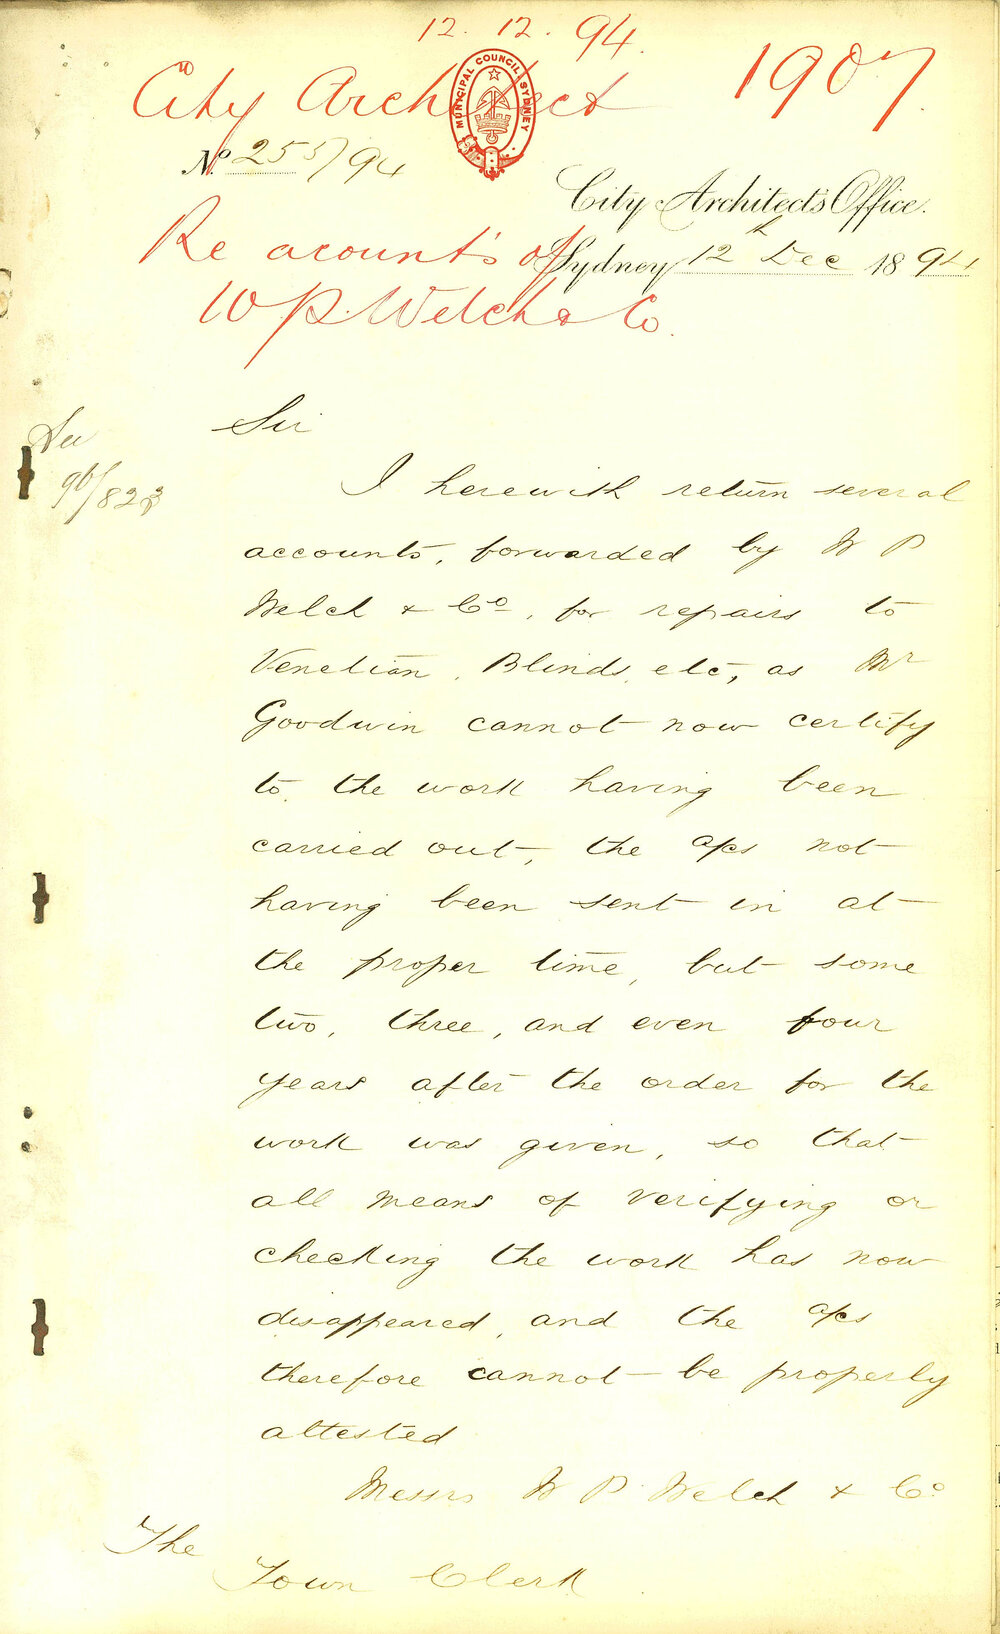 12. 12. 94.
City Architect 1907
MUNICIPAL COUNCIL SYDNEY
No. 255/94
City Architect's Office.
Re acount's of
Sydney 12th Dec 1894
W P. Welch & Co.
Sir
I herewith return several
accounts, forwarded by W P
Welch & Co, for repairs to
Venetian Blinds, etc, as Mr
Goodwin cannot now certify
to the work having been
carried out, the a/cs not
having been sent in at
the proper time, but some
two, three, and even four
years after the order for the
work was given, so that
all means of verifying or
checking the work has now
disappeared, and the a/cs
therefore cannot be properly
attested
Messrs W P. Welch & Co
The
Town Clerk